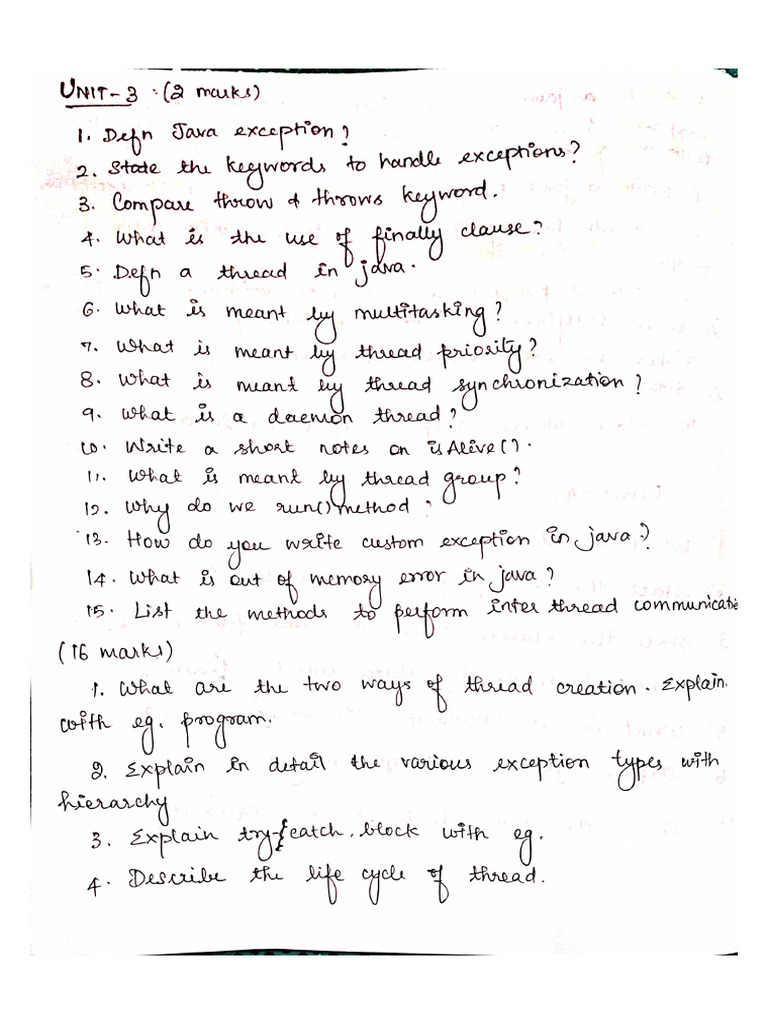 UNIT-3 : (2 marks)
1. Defn Java exception?
2. State the keywords to handle exceptions?
3. Compare throw & throws keyword.
4. What is the use of finally clause?
5. Defn a thread in java.
6. What is meant by multitasking?
7. What is meant by thread priority?
8. What is meant by thread synchronization?
9. What is a daemon thread?
10. Write a short notes on isAlive().
11. What is meant by thread group?
12. Why do we run() method?
13. How do you write custom exception in java?
14. What is out of memory error in java?
15. List the methods to perform inter thread communicatio
(16 marks)
1. What are the two ways of thread creation. Explain.
with eg. program.
2. Explain in detail the various exception types with
hierarchy
3. Explain try-{catch, block with eg.
4. Describe the life cycle of thread.